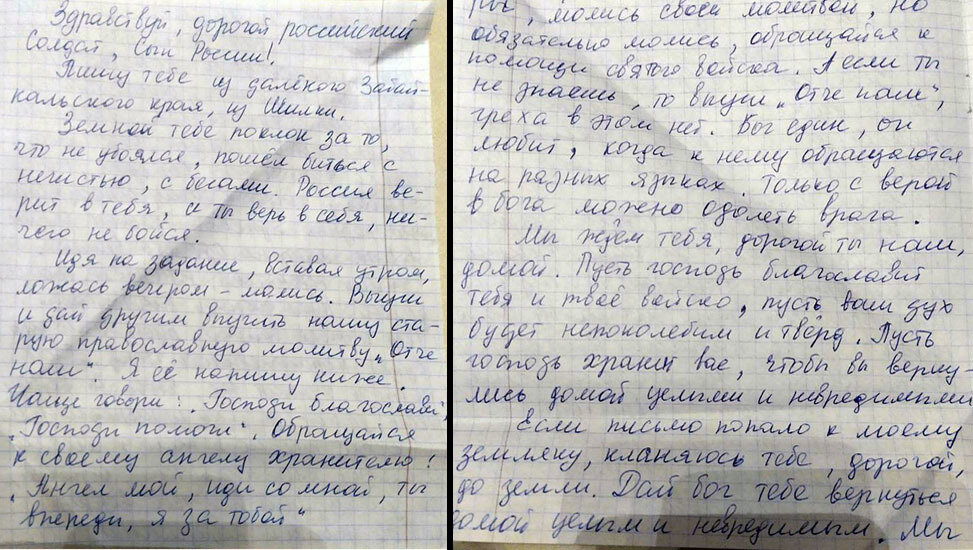 Здравствуй, дорогой российский
Солдат, Сын России!
Пишу тебе из далёкого Забай-
кальского края, из Шилки.
Земной тебе поклон за то,
что не убоялся, пошёл биться с
нечистью, с бесами. Россия ве-
рит в тебя, и ты верь в себя, ни-
чего не бойся.
Идя на задание, вставая утром,
ложась вечером - молись. Выучи
и дай другим выучить нашу ста-
рую православную молитву „Отче
наш". Я её напишу ниже.
Чаще говори: „Господи благослави",
„Господи помоги". Обращайся
к своему ангелу хранителю!
„Ангел мой, иди со мной, ты
впереди, я за тобой"
молись своей молитвой, но
обязательно молись, обращайся к
помощи святого войска. А если ты
не знаешь, то выучи „Отче наш",
греха в этом нет. Бог един, он
любит, когда к нему обращаются
на разных языках. Только с верой
в бога можно одолеть врага.
Мы ждём тебя, дорогой ты наш,
домой. Пусть господь благославит
тебя и твоё войско, пусть ваш дух
будет непоколебим и твёрд. Пусть
господь хранит вас, чтобы вы верну-
лись домой целыми и невредимыми
Если письмо попало к моему
земляку, кланяюсь тебе, дорогой,
до земли. Дай бог тебе вернуться
домой целым и невредимым. Мы